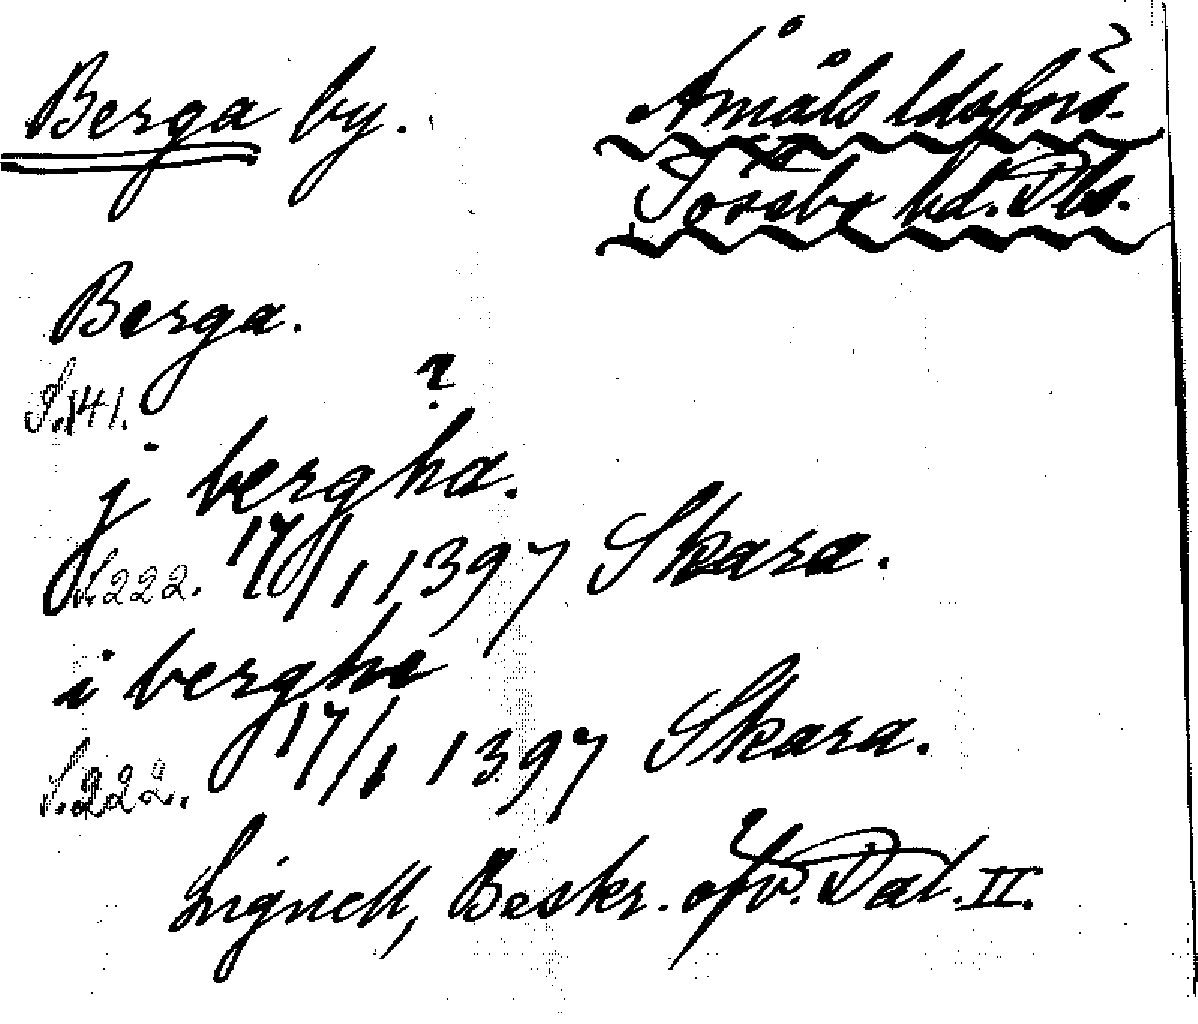 Berga by.
Åmåls ldsförs.
Tössbo hd. Dls.
Berga.
S. 141.
?
j bergha.
S. 222. 17/1 1397 Skara.
i berghe
S. 222. 17/1 1397 Skara.
Lignell, Beskr. öfv. Dal. II.